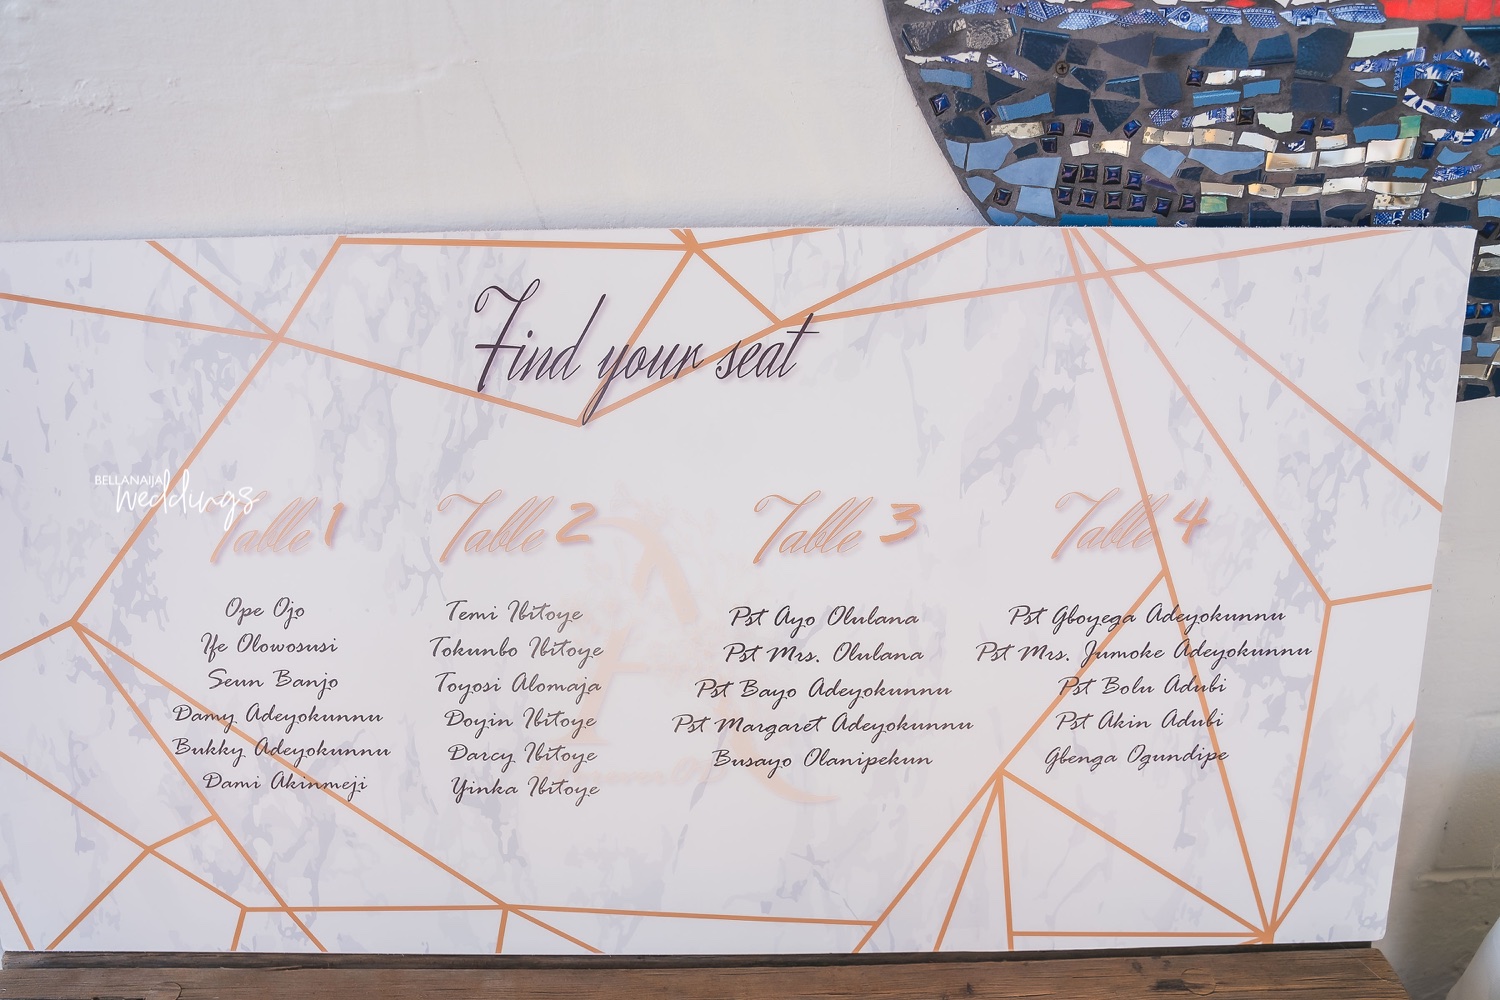 Find your seat
BELLANAIJA
weddings
Table 1
Ope Ojo
Ife Olowosusi
Seun Banjo
Damy Adeyokunnu
Bukky Adeyokunnu
Dami Akinmeji
Table 2
Temi Ibitoye
Tokunbo Ibitoye
Toyosi Alomaja
Doyin Ibitoye
Darcy Ibitoye
Yinka Ibitoye
Table 3
Pst Ayo Olulana
Pst Mrs. Olulana
Pst Bayo Adeyokunnu
Pst Margaret Adeyokunnu
Busayo Olanipekun
Table 4
Pst Gboyega Adeyokunnu
Pst Mrs. Jumoke Adeyokunnu
Pst Bolu Adubi
Pst Akin Adubi
Gbenga Ogundipe